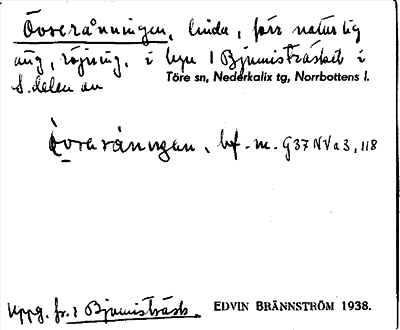 Överånningen, linda, förr naturlig
äng, röjning, i byn 1 Bjumisträsket i
S. delen av Töre sn, Nederkalix tg, Norrbottens l.
bf. m. G37NVa3, 118
Uppg. fr. 1 Bjumisträsk. EDVIN BRÄNNSTRÖM 1938.